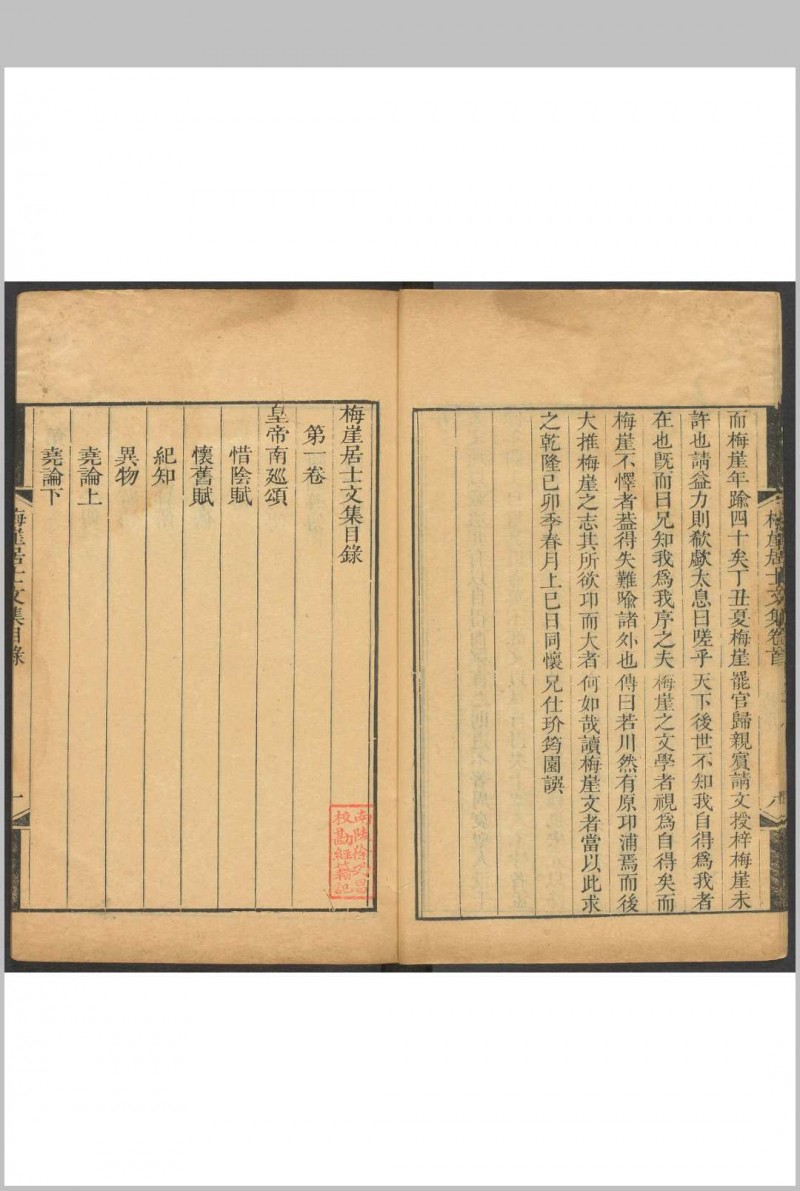 而梅崖年踰四十矣丁丑夏梅崖罷官歸親賓請文授梓梅崖未
許也請益力則欷歔太息曰嗟乎天下後世不知我自得爲我者
在也旣而曰兄知我爲我序之夫梅崖之文學者視爲自得矣而
梅崖不懌者葢得失難喩諸外也傳曰若川然有原卬浦焉而後
大推梅崖之志其所欲卬而大者何如哉讀梅崖文者當以此求
之乾隆己卯季春月上巳日同懷兄仕玠筠園譔
梅崖居士文集卷首
梅崖居士文集目錄
第一卷
皇帝南廵頌
惜陰賦
懷舊賦
紀知
異物
堯論上
堯論下
南陵徐乃昌
校勘經籍記
梅崖居士文集目錄
一